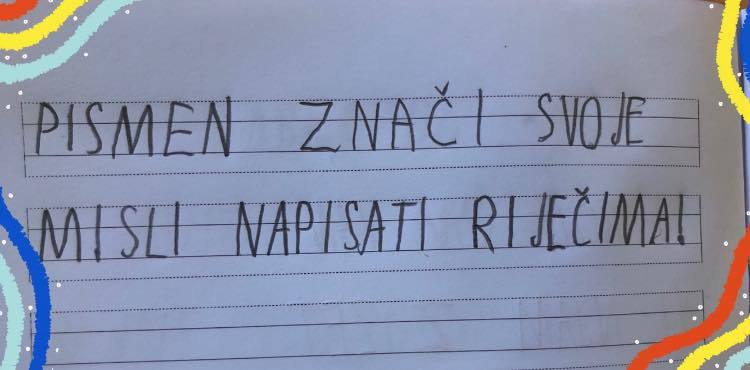 PISMEN ZNAČI SVOJE
MISLI NAPISATI RIJEČIMA!